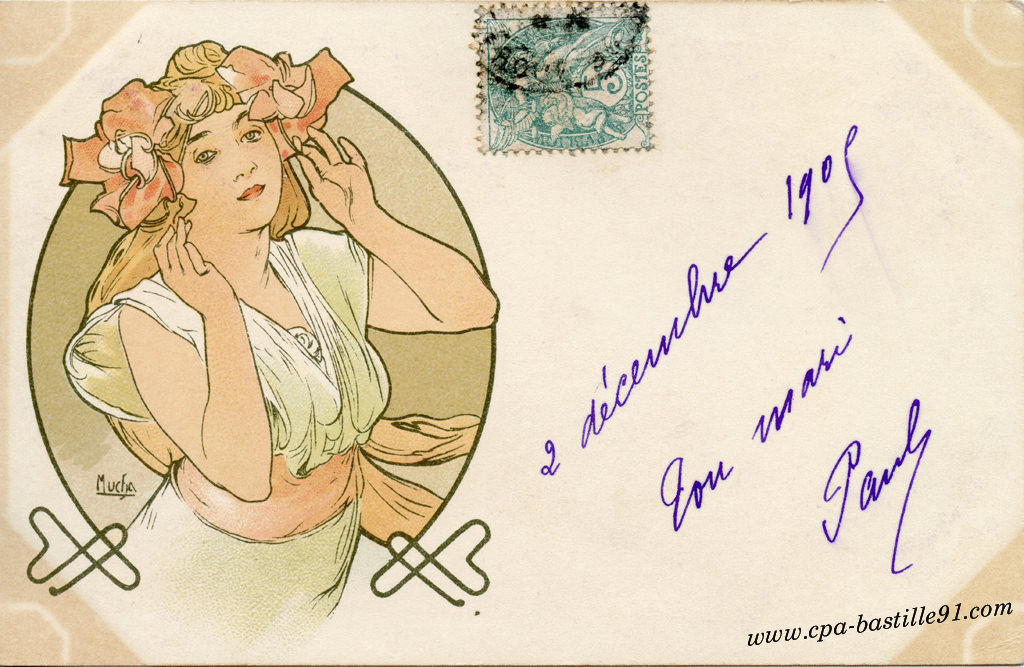 5
POSTES
2 décembre 1905
Ton mari
Paul
Mucha
www.cpa-bastille91.com